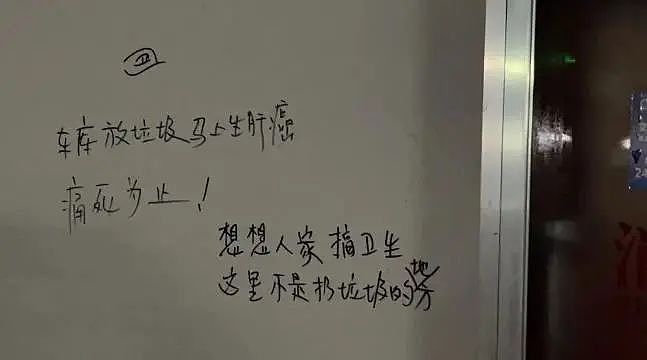 四
车库放垃圾马上生肝癌
痛死为止！
想想人家搞卫生
这里不是扔垃圾的地方